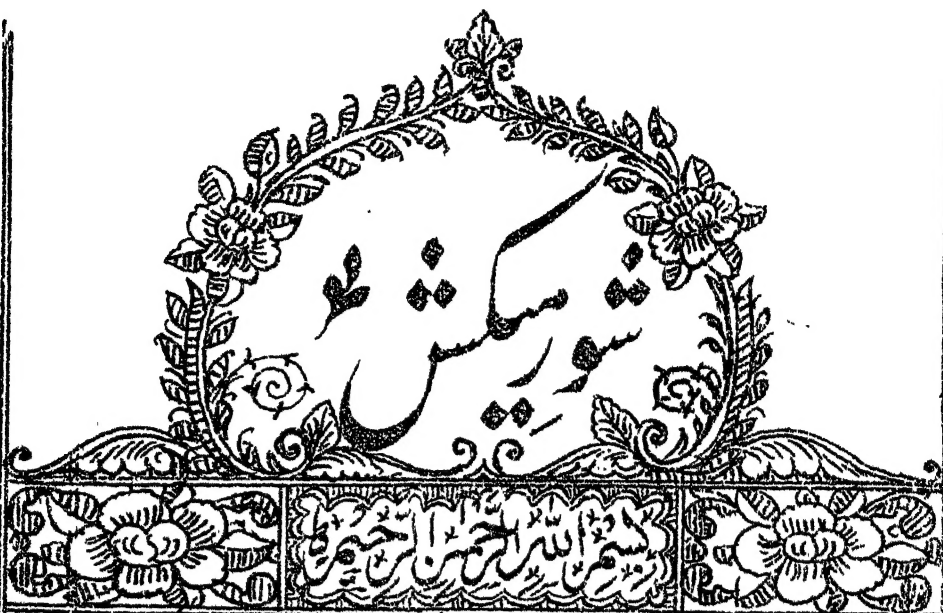 شورِ میکش
بسم الله الرحمن الرحيم